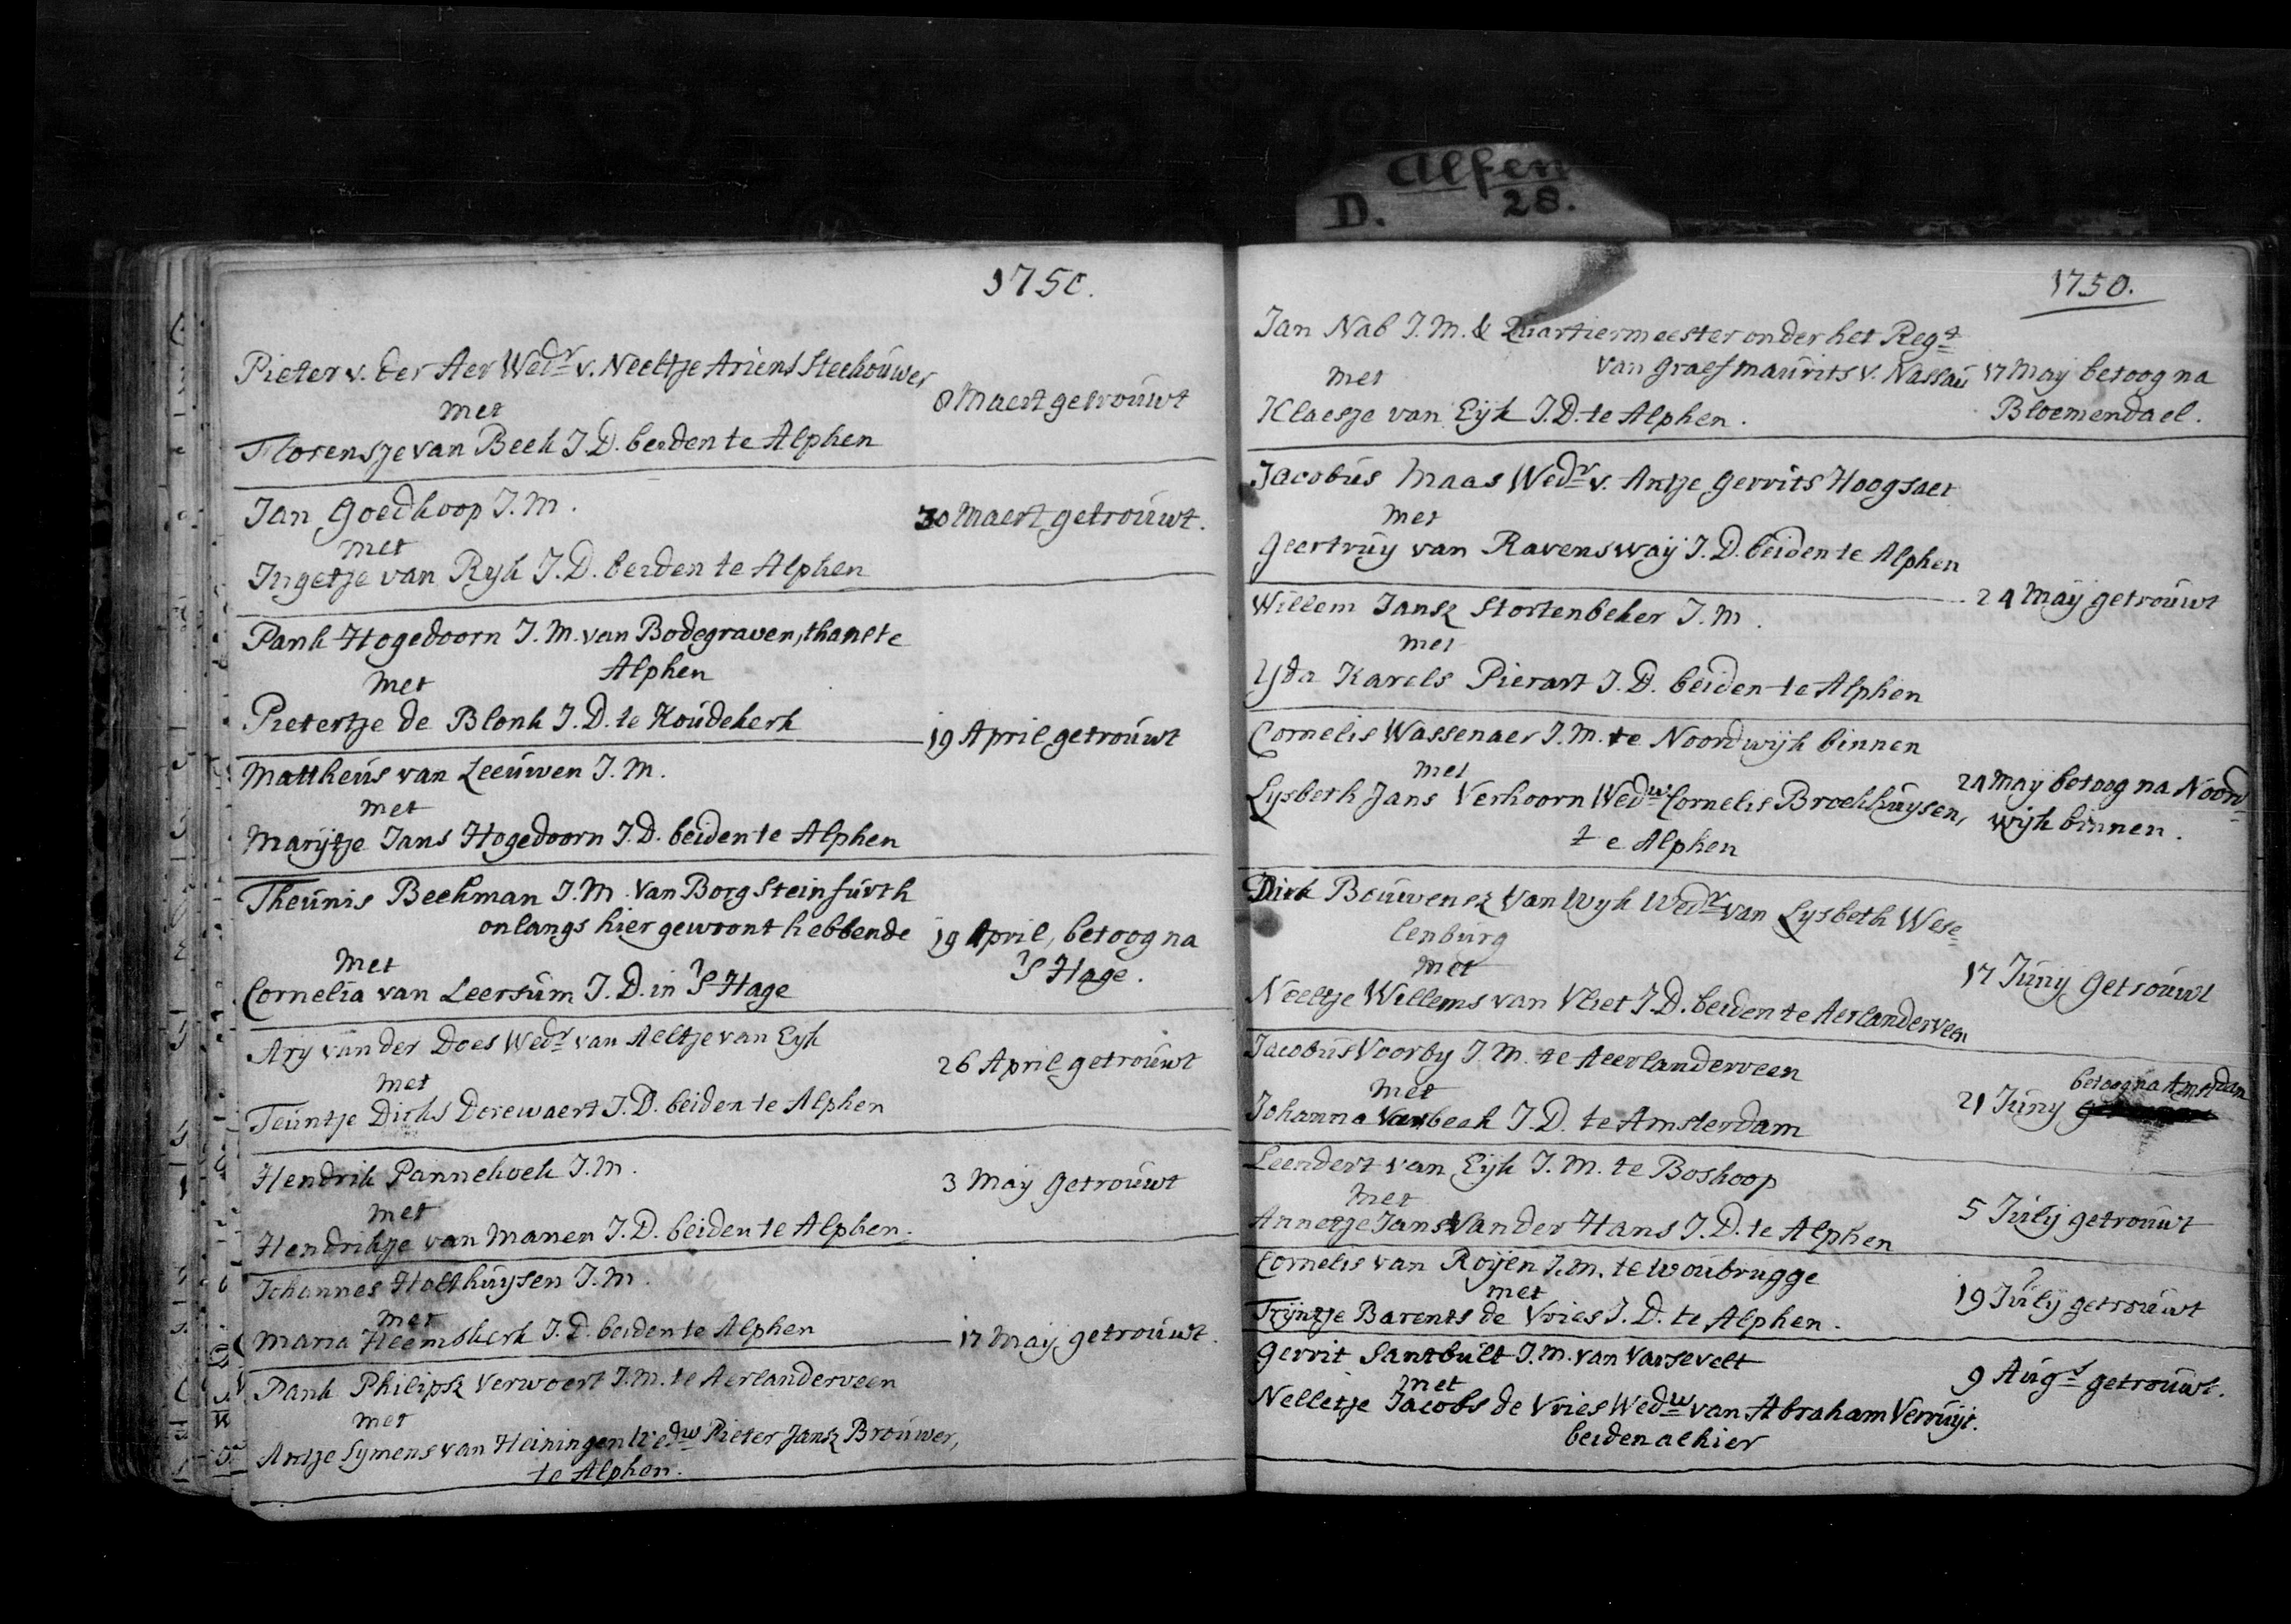 Alfen
D. 28.
1750.
Pieter v. der Aer Wedr v. Neeltje Ariens Steehouwer
met
8 Maert getrouwt
Florensje van Beek J.D. beiden te Alphen
Jan Goedkoop J.M.
30 Maert getrouwt.
met
Ingetje van Ryk J.D. beiden te Alphen
Pank Hogedoorn J.M. van Bodegraven, thans te
Alphen
met
Pietertje de Blonk J.D. te Koudekerk
19 April getrouwt
Mattheus van Leeuwen J.M.
met
Marijtje Jans Hogedoorn J.D. beiden te Alphen
Theunis Beekman J.M. van Borg Steinfurth
onlangs hier gewoont hebbende
19 April, betoog na
's Hage.
met
Cornelia van Leersum J.D. in 's Hage
Ary van der Does Wedr van Aeltje van Eyk
26 April getrouwt
met
Teuntje Dirks Dorewaert J.D. beiden te Alphen
Hendrik Pannekoek J.M.
3 May Getrouwt
met
Hendrikje van Manen J.D. beiden te Alphen.
Johannes Holthuysen J.M.
met
Maria Heemskerk J.D. beiden te Alphen
17 Maij getrouwt.
Pank Philipsz Verwoert J.M. te Aerlanderveen
met
Antje Symens van Heiningen Wedw Pieter Jansz Brouwer,
te Alphen.
1750.
Jan Nab J.M. & Quartiermeester onder het Regt
van Graef Maurits v. Nassau
17 May betoog na
Bloemendael.
met
Klaesje van Eijk J.D. te Alphen.
Jacobus Maas Wedr v. Antje Gerrits Hoogsaet
met
Geertruy van Ravenswaij J.D. beiden te Alphen
24 Maij getrouwt
Willem Jansz Stortenbeker J.M.
met
Yda Karels Pierart J.D. beiden te Alphen
Cornelis Wassenaer J.M. te Noordwijk binnen
met
Lysbeth Jans Verhoorn Wedw Cornelis Broekhuysen,
te Alphen
24 Maij betoog na Noord-
wijk binnen.
Dirk Bouwensz van Wyk Wedr van Lysbeth Wese=
lenburg
met
17 Juny Getrouwt
Neeltje Willems van Vliet J.D. beiden te Aerlanderveen
Jacobus Voorby J.M. te Aerlanderveen
met
betoog na Amsterdam
21 Juny
Johanna Verbeek J.D. te Amsterdam
Leendert van Eijk J.M. te Boskoop
met
5 Julij getrouwt
Annetje Jans Van der Hans J.D. te Alphen
Cornelis van Roijen J.M. te Woubrugge
met
19 Julij getrouwt
Trijntje Barents de Vries J.D. te Alphen.
Gerrit Santbult J.M. van Varsevelt
met
9 Augs getrouwt.
Nelletje Jacobs de Vries Wedw van Abraham Verruijt.
beiden alhier